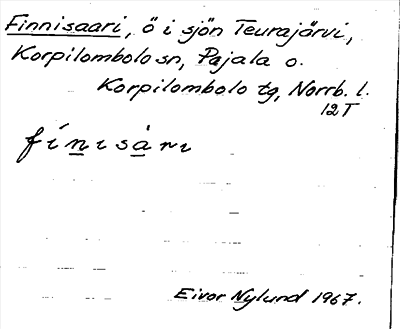 Finnisaari, ö i sjön Teurajärvi,
Korpilombolo sn, Pajala o.
Korpilombolo tg, Norrb. l.
12T
fíni̱sàri
Eivor Nylund 1967.